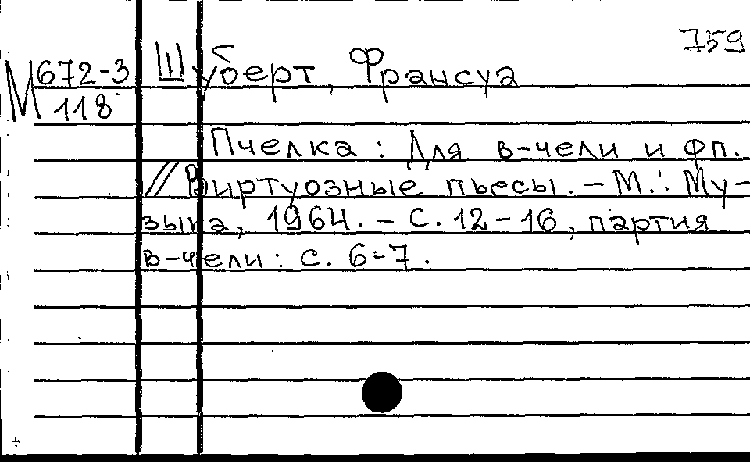 759
М 672-3
118
Шуберт, Франсуа
Пчелка : Для в-чели и фп.
// Виртуозные пьесы. - М.: Му-
зыка, 1964. - С. 12-16, партия
в-чели : с. 6-7.